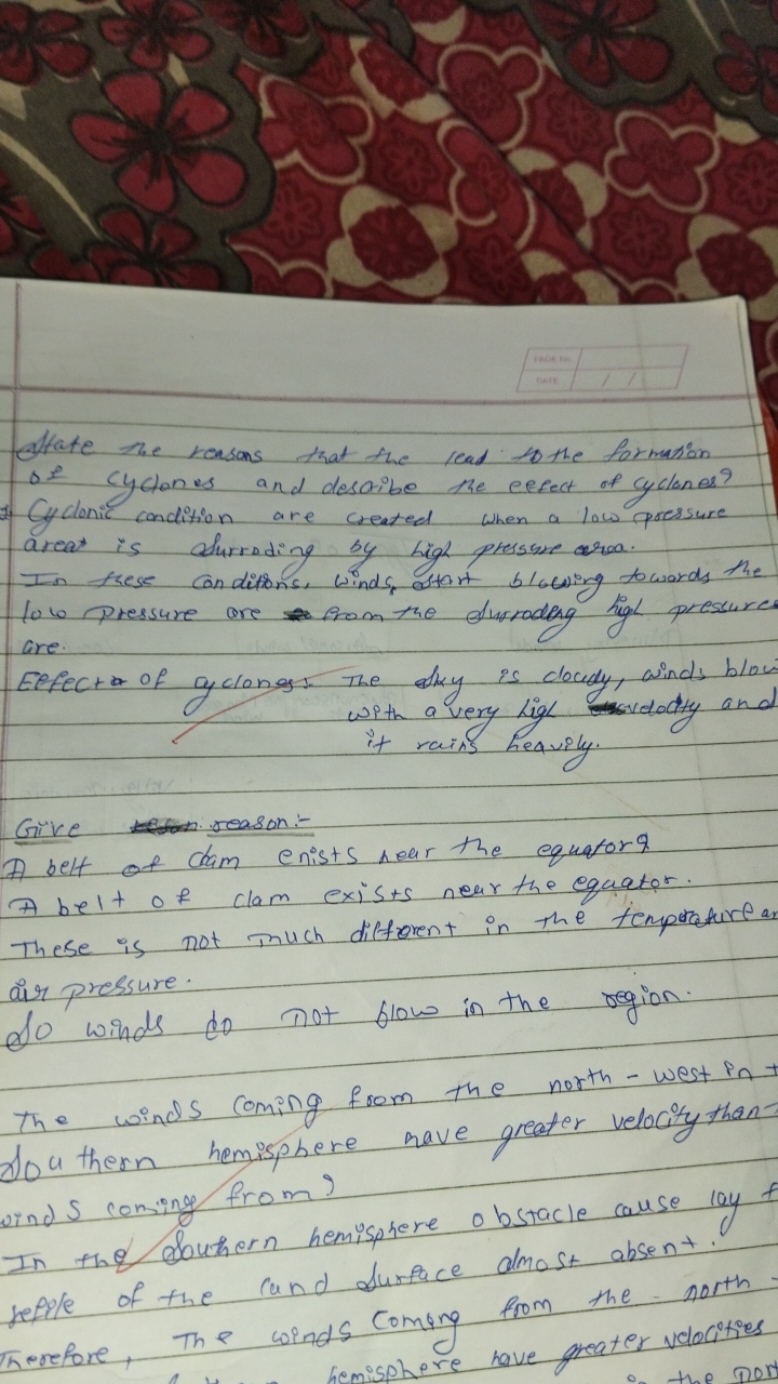 PAGE No.
DATE / /
State the reasons that the lead to the formation
of cyclones and describe the eefect of cyclones?
Cyclonic condition are created when a low pressure
area is surroding by high pressure area.
In these conditions, winds start blowing towards the
low pressure are from the surroding high pressures
are.
Effect of cyclones:- The sky is cloudy, winds blow
with a very high velocity and
it rains heavily.
Give reason:-
A belt of clam enists near the equator?
A belt of clam exists near the equator.
These is not much different in the temperature
air pressure.
So winds do not blow in the region.
The winds coming from the north-west in
Southern hemisphere have greater velocity than
winds coming from?
In the Southern hemisphere obstacle cause lay
of the land surface almost absent.
Therefore, The winds coming from the north-
hemisphere have greater velocities
in the